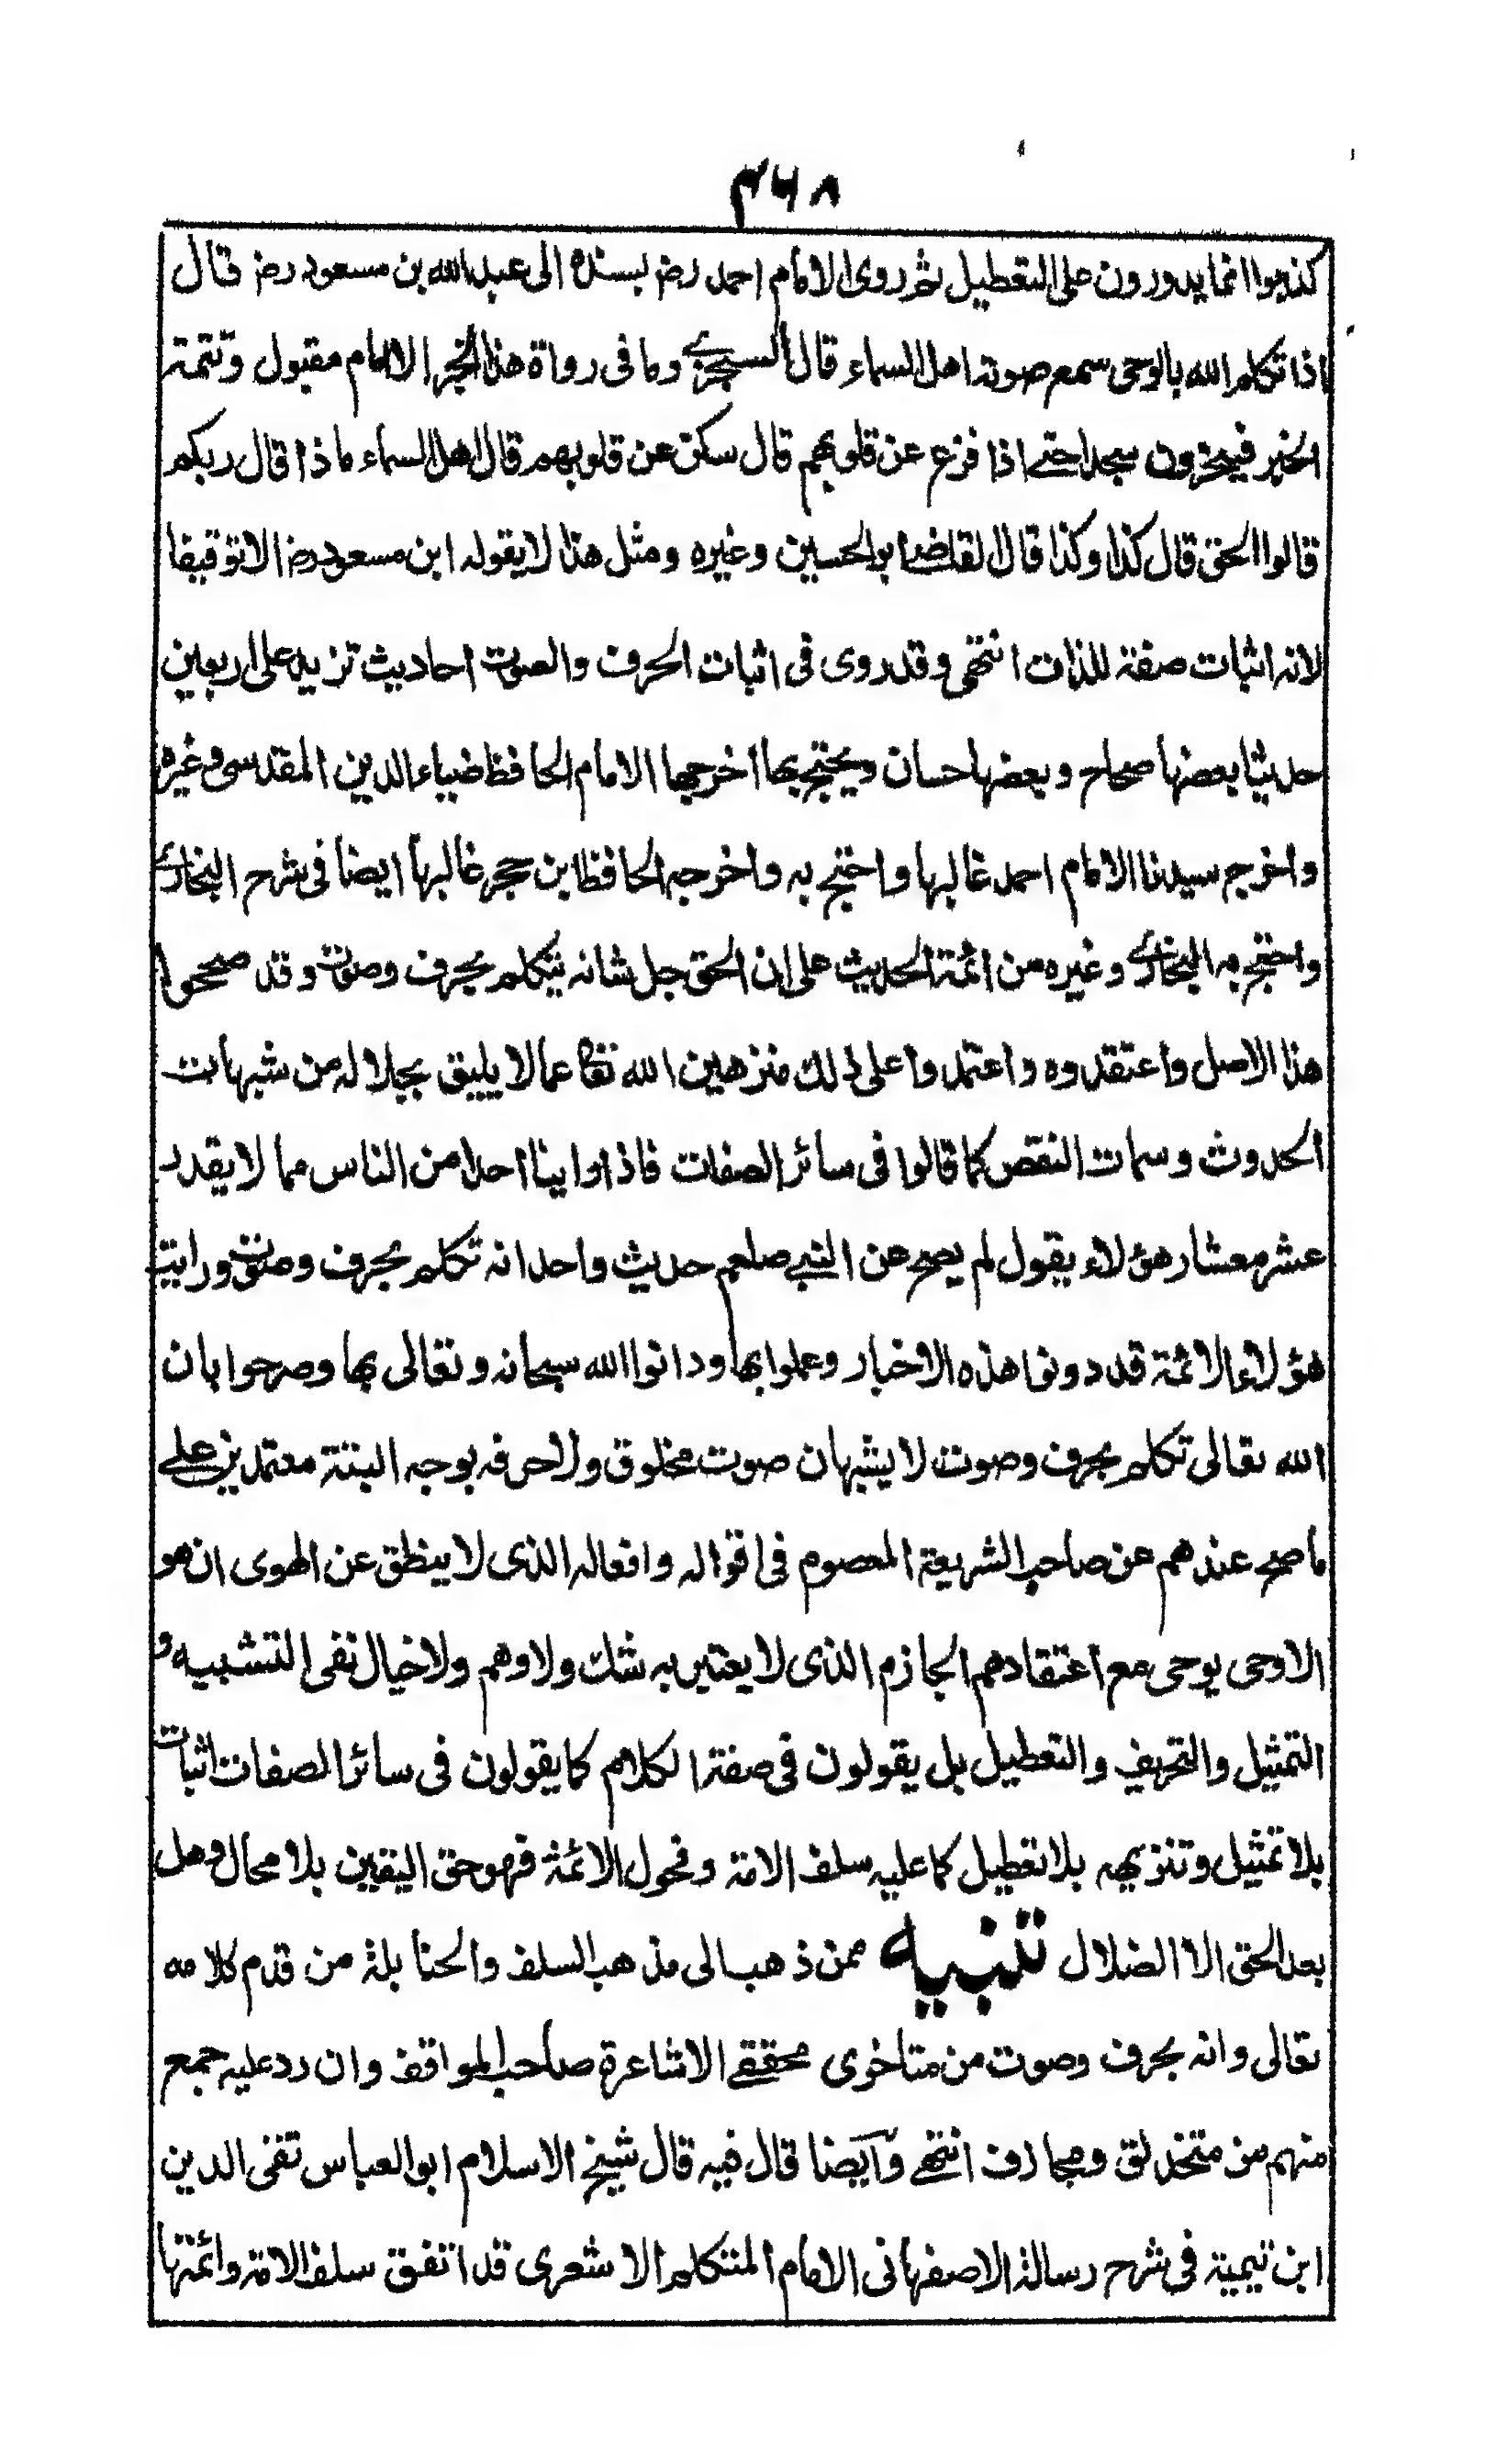 ٣٦٨
كذبوا انما يدورون على التعطيل ثم روى الامام احمد رضـ بسنده الى عبد الله بن مسعود رضـ قال
اذا تكلم الله بالوحى سمع صوته اهل السماء قال السجزى وما فى رواة هذا الخبر الا امام مقبول وتتمة
الخبر فيخرون سجدا حتى اذا فزع عن قلوبهم قال سكن عن قلوبهم قال اهل السماء ما ذا قال ربكم
قالوا الحق قال كذا وكذا قال القاضى ابو الحسين وغيره ومثل هذا لا يقوله ابن مسعود رضـ الا توقيفا
لانه اثبات صفة للذات انتهى وقد روى فى اثبات الحرف والصوت احاديث تزيد على اربعين
حديثا بعضها صحاح وبعضها حسان ويحتج بها اخرجها الامام الحافظ ضياء الدين المقدسى وغيره
واخرج سيدنا الامام احمد غالبها واحتج به واخرجه الحافظ ابن حجر غالبها ايضا فى شرح البخارى
واحتج به البخارى وغيره من ائمة الحديث على ان الحق جل شانه يتكلم بحرف وصوت وقد صححوا
هذا الاصل واعتقدوه واعتمدوا على ذلك منزهين الله تعا عما لا يليق بجلاله من شبهات
الحدوث وسمات النقص كما قالوا فى سائر الصفات فاذا راينا احدا من الناس مما لا يقدر
عشر معشار هؤلاء يقول لم يصح عن النبى صلعم حديث واحد انه تكلم بحرف وصوت ورايت
هؤلاء الائمة قد دونوا هذه الاخبار وعملوا بها ودانوا الله سبحانه وتعالى بها وصرحوا بان
الله تعالى تكلم بحرف وصوت لا يشبهان صوت مخلوق ولا حرفه بوجه البتة معتمدين على
ما صح عندهم عن صاحب الشريعة المعصوم فى اقواله وافعاله الذى لا ينطق عن الهوى ان هو
الا وحى يوحى مع اعتقادهم الجازم الذى لا يعتريه شك ولا وهم ولا خيال نفى التشبيه و
التمثيل والتحريف والتعطيل بل يقولون فى صفة الكلام كما يقولون فى سائر الصفات اثبات
بلا تمثيل وتنزيه بلا تعطيل كما عليه سلف الامة وفحول الائمة فهو حق اليقين بلا محال وهل
بعد الحق الا الضلال تنبيه ممن ذهب الى مذهب السلف والحنابلة من قدم كلامه
تعالى وانه بحرف وصوت من متاخرى محققى الاشاعرة صاحب المواقف وان رد عليه جمع
منهم من متحذلق ومجازف انتهى وايضا قال فيه قال شيخ الاسلام ابو العباس تقى الدين
ابن تيمية فى شرح رسالة الاصفهانى الامام المتكلم الاشعرى قد اتفق سلف الامة وائمتها